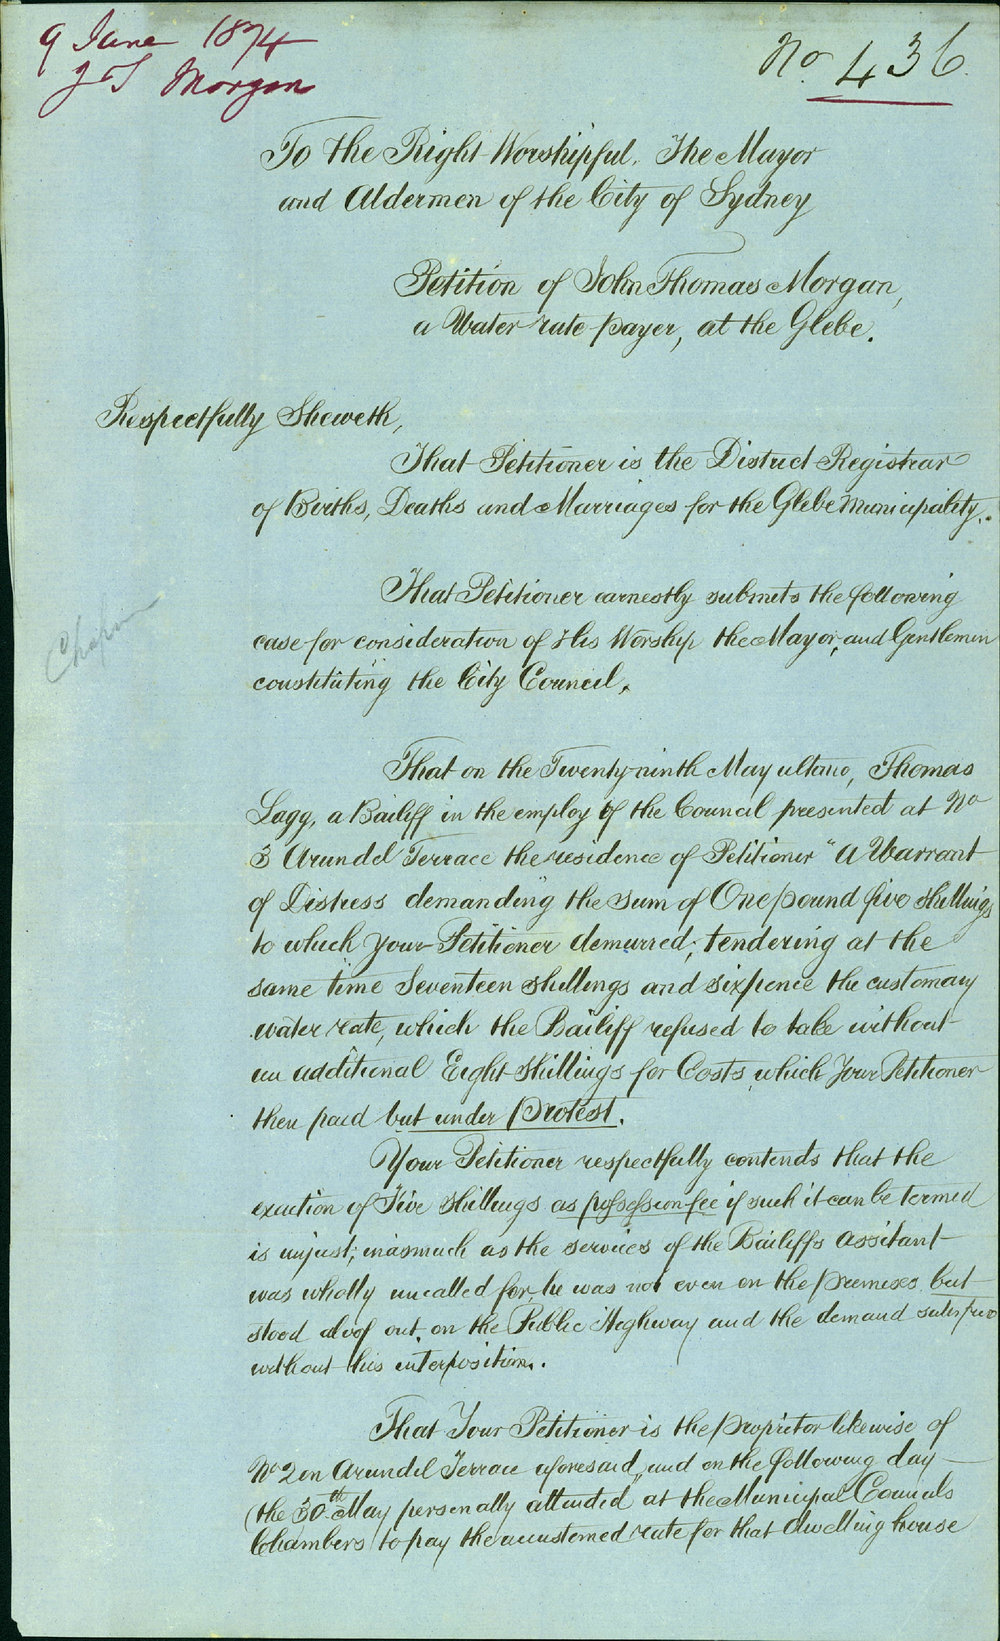 9 June 1874
J T Morgan
No. 436.
To the Right Worshipful, The Mayor
and Aldermen of the City of Sydney
Petition of John Thomas Morgan,
a Water rate payer, at the Glebe.
Respectfully Sheweth,
That Petitioner is the District Registrar
of Births, Deaths and Marriages for the Glebe Municipality.
That Petitioner earnestly submits the following
case for consideration of His Worship the Mayor, and Gentlemen
constituting the City Council.
That on the Twenty-ninth May ultimo, Thomas
Lagg, a Bailiff in the employ of the Council presented at No
3 Arundel Terrace the residence of Petitioner "A Warrant
of Distress" demanding the sum of One pound five shillings
to which Your Petitioner demurred; tendering at the
same time Seventeen shillings and sixpence the customary
water rate, which the Bailiff refused to take without
an additional Eight shillings for Costs, which Your Petitioner
then paid but under Protest.
Your Petitioner respectfully contends that the
exaction of Five Shillings as possession fee if such it can be termed
is unjust; inasmuch as the services of the Bailiffs Assitant
was wholly uncalled for, he was not even on the premises but
stood aloof out, on the Public Highway and the demand
without his interposition.
That Your Petitioner is the proprietor likewise of
No 2 on Arundel Terrace aforesaid, and on the following day
(the 30th May personally attended at the Municipal Councils
Chambers) to pay the accustomed rate for that dwelling house